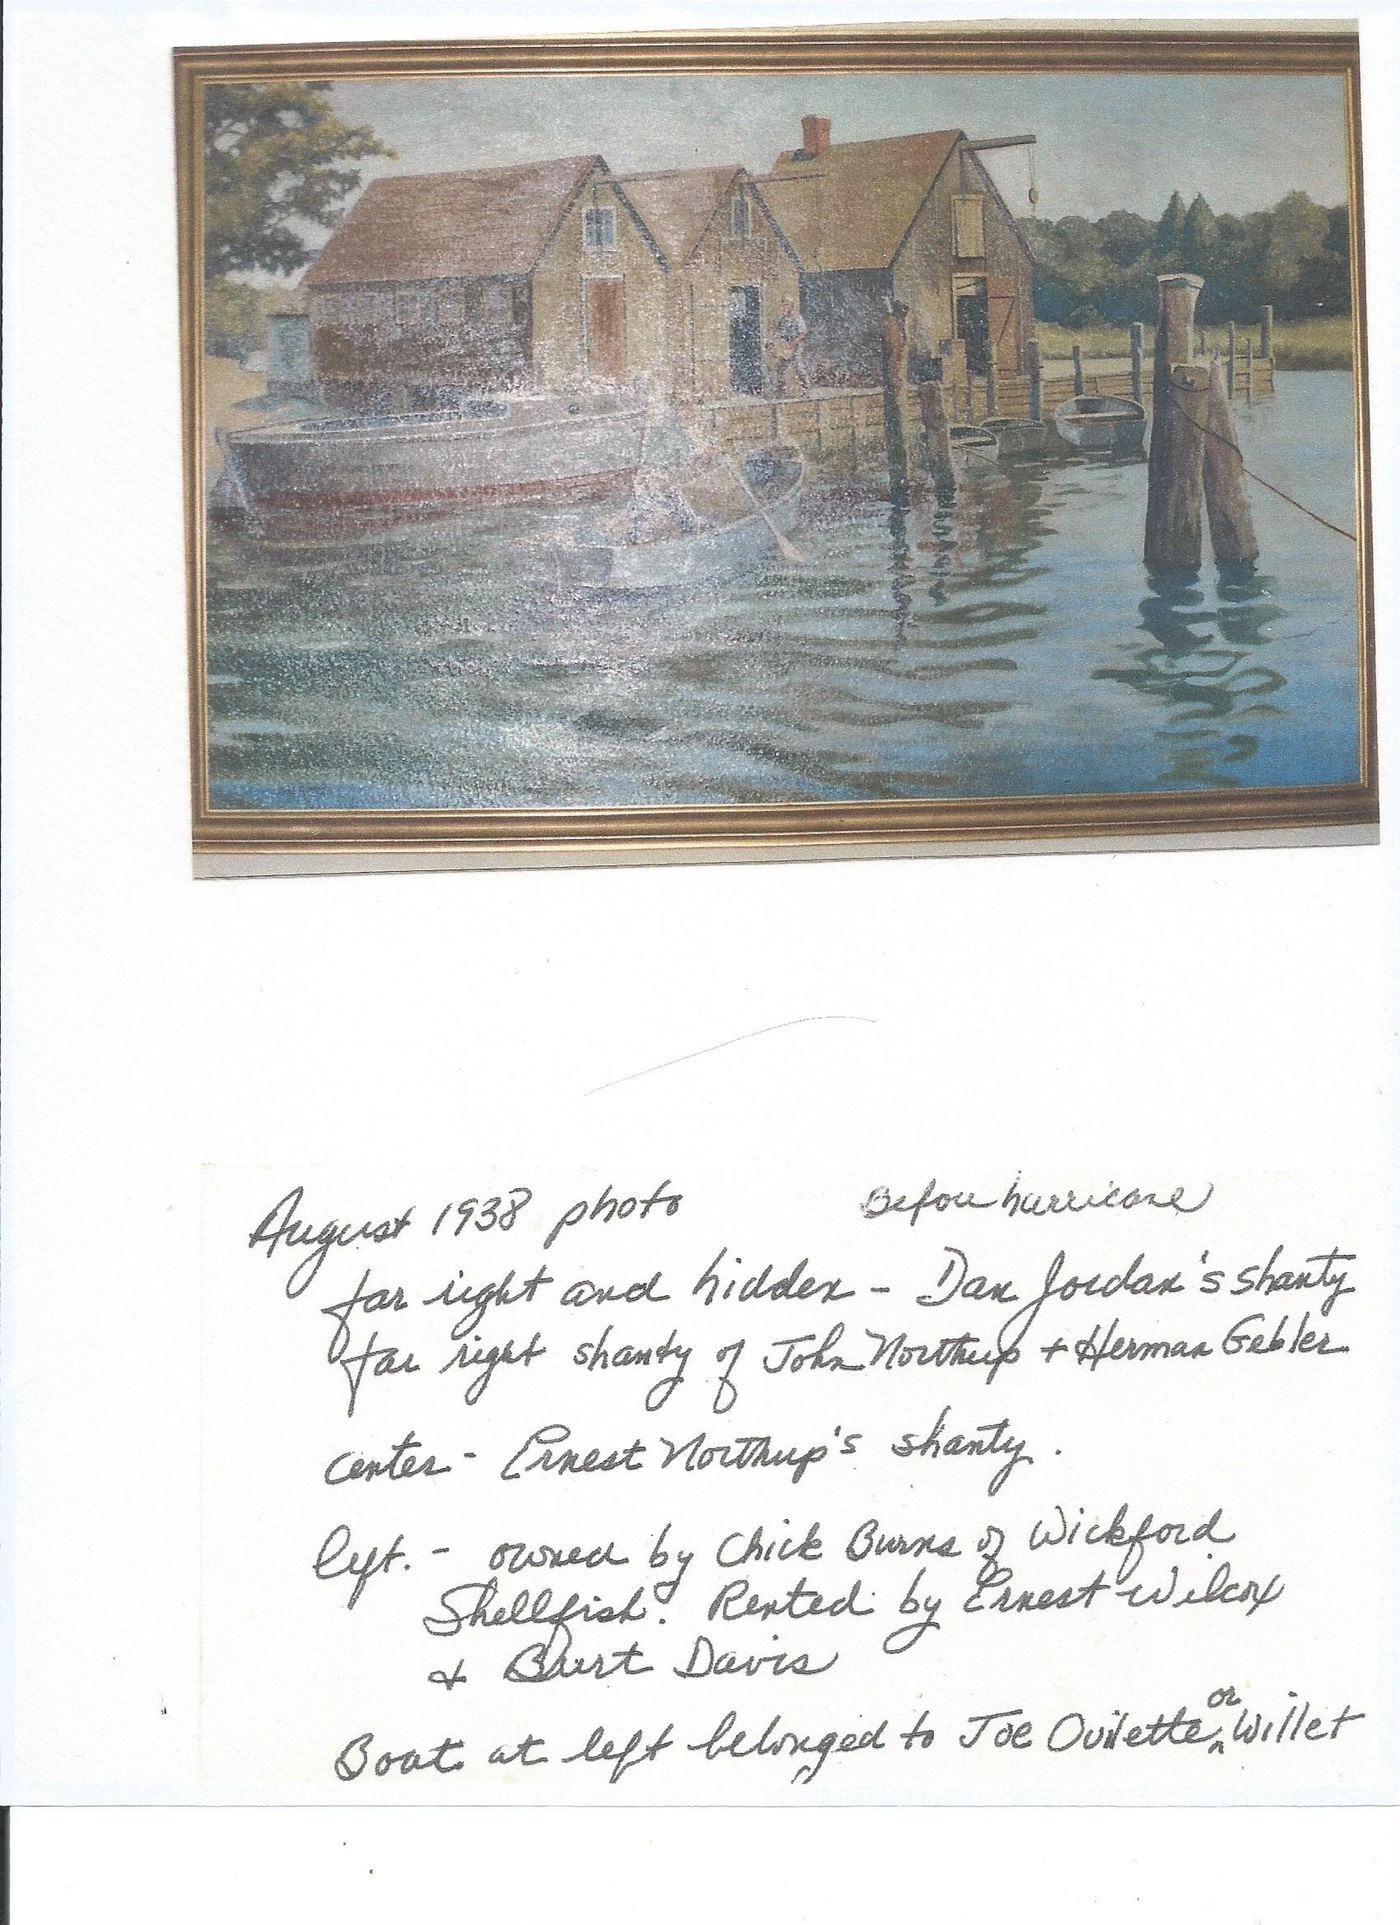 August 1938 photo Before hurricane
far right and hidden - Dan Jordan's shanty
far right shanty of John Northup + Herman Gebler
center - Ernest Northup's shanty.
left. - owned by Chick Burns of Wickford
Shellfish. Rented by Ernest Wilcox
& Burt Davis
Boat at left belonged to Joe Ouilette or Willet